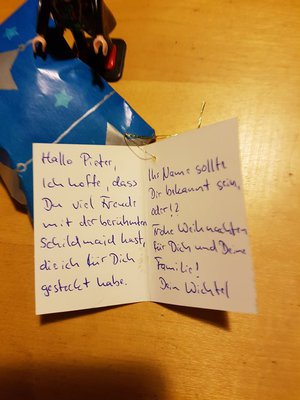 Hallo Pieter,
Ich hoffe, dass
Du viel Freude
mit der berühmten
Schildmaid hast,
die ich für Dich
gesteckt habe.
Ihr Name sollte
Dir bekannt sein,
oder!?
Frohe Weihnachten
für Dich und Deine
Familie!
Dein Wichtel